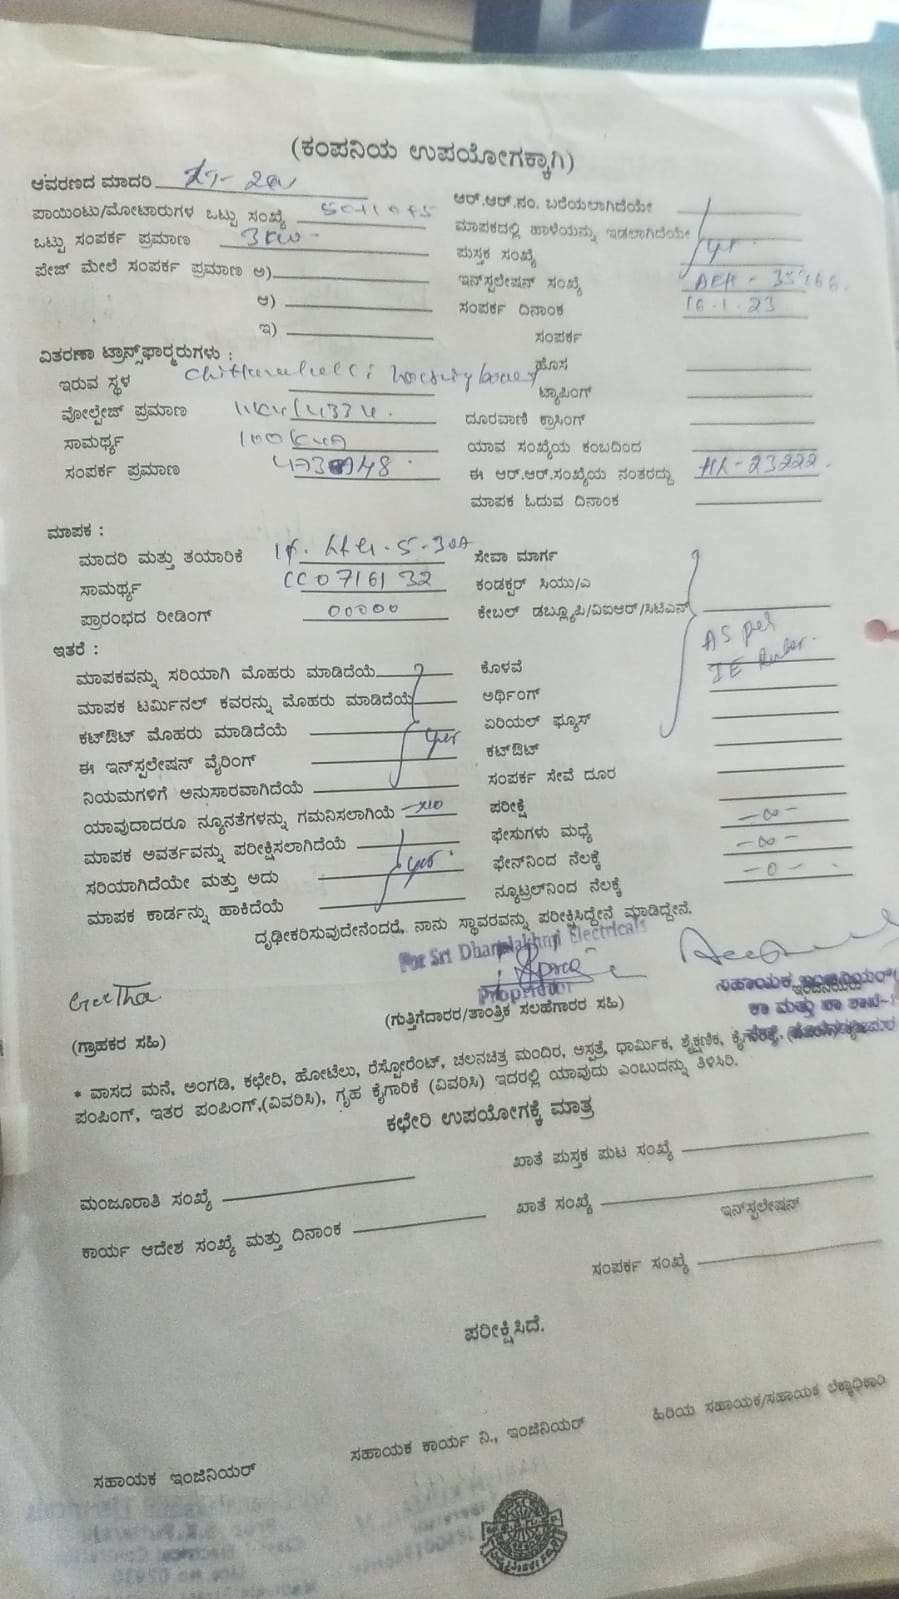 (ಕಂಪನಿಯ ಉಪಯೋಗಕ್ಕಾಗಿ)
ಆವರಣದ ಮಾದರಿ
ಪಾಯಿಂಟು/ಮೋಟಾರುಗಳ ಒಟ್ಟು ಸಂಖ್ಯೆ
ಒಟ್ಟು ಸಂಪರ್ಕ ಪ್ರಮಾಣ 3KW
ಪೇಜ್ ಮೇಲೆ ಸಂಪರ್ಕ ಪ್ರಮಾಣ ಅ)
ಆ)
ಇ)
ವಿತರಣಾ ಟ್ರಾನ್ಸ್‌ಫಾರ್ಮರುಗಳು :
ಇರುವ ಸ್ಥಳ
ವೋಲ್ಟೇಜ್ ಪ್ರಮಾಣ
ಸಾಮರ್ಥ್ಯ 100KVA
ಸಂಪರ್ಕ ಪ್ರಮಾಣ
ಆರ್.ಆರ್.ನಂ. ಬರೆಯಲಾಗಿದೆಯೇ
ಮಾಪಕದಲ್ಲಿ ಹಾಳೆಯನ್ನು ಇಡಲಾಗಿದೆಯೇ
ಪುಸ್ತಕ ಸಂಖ್ಯೆ
ಇನ್‌ಸ್ಟಲೇಷನ್ ಸಂಖ್ಯೆ
ಸಂಪರ್ಕ ದಿನಾಂಕ 16.1.23
ಸಂಪರ್ಕ
ಹೊಸ
ಟ್ಯಾಪಿಂಗ್
ದೂರವಾಣಿ ಕ್ರಾಸಿಂಗ್
ಯಾವ ಸಂಖ್ಯೆಯ ಕಂಬದಿಂದ
ಈ ಆರ್.ಆರ್.ಸಂಖ್ಯೆಯ ನಂತರದ್ದು
ಮಾಪಕ ಓದುವ ದಿನಾಂಕ
ಮಾಪಕ :
ಮಾದರಿ ಮತ್ತು ತಯಾರಿಕೆ
ಸಾಮರ್ಥ್ಯ CC0716132
ಪ್ರಾರಂಭದ ರೀಡಿಂಗ್ 00000
ಸೇವಾ ಮಾರ್ಗ
ಕಂಡಕ್ಟರ್ ಸಿಯು/ಎ
ಕೇಬಲ್ ಡಬ್ಲ್ಯೂಪಿ/ವಿಐಆರ್/ಸಿಟಿಎಸ್
ಇತರೆ :
ಮಾಪಕವನ್ನು ಸರಿಯಾಗಿ ಮೊಹರು ಮಾಡಿದೆಯೆ
ಮಾಪಕ ಟರ್ಮಿನಲ್ ಕವರನ್ನು ಮೊಹರು ಮಾಡಿದೆಯೆ
ಕಟ್‌ಔಟ್ ಮೊಹರು ಮಾಡಿದೆಯೆ
ಈ ಇನ್‌ಸ್ಟಲೇಷನ್ ವೈರಿಂಗ್ yes
ನಿಯಮಗಳಿಗೆ ಅನುಸಾರವಾಗಿದೆಯೇ
ಯಾವುದಾದರೂ ನ್ಯೂನತೆಗಳನ್ನು ಗಮನಿಸಲಾಗಿಯೆ no
ಮಾಪಕ ಅವರ್ತವನ್ನು ಪರೀಕ್ಷಿಸಲಾಗಿದೆಯೆ
ಸರಿಯಾಗಿದೆಯೇ ಮತ್ತು ಅದು yes
ಮಾಪಕ ಕಾರ್ಡನ್ನು ಹಾಕಿದೆಯೆ
ಕೊಳವೆ
ಅರ್ಥಿಂಗ್
ಏರಿಯಲ್ ಫ್ಯೂಸ್
ಕಟ್‌ಔಟ್
ಸಂಪರ್ಕ ಸೇವೆ ದೂರ
ಪರೀಕ್ಷೆ
ಫೇಸುಗಳು ಮಧ್ಯೆ -∞-
ಫೇಸ್‌ನಿಂದ ನೆಲಕ್ಕೆ -∞-
ನ್ಯೂಟ್ರಲ್‌ನಿಂದ ನೆಲಕ್ಕೆ -0-
As per
IE Rules.
ದೃಢೀಕರಿಸುವುದೇನೆಂದರೆ, ನಾನು ಸ್ಥಾವರವನ್ನು ಪರೀಕ್ಷಿಸಿದ್ದೇನೆ ಮಾಡಿದ್ದೇನೆ.
For Sri Dhanalakhmi Electricals
Propridtor
Geetha
(ಗ್ರಾಹಕರ ಸಹಿ)
(ಗುತ್ತಿಗೆದಾರರ/ತಾಂತ್ರಿಕ ಸಲಹೆಗಾರರ ಸಹಿ)
* ವಾಸದ ಮನೆ, ಅಂಗಡಿ, ಕಛೇರಿ, ಹೋಟೆಲು, ರೆಸ್ಟೋರೆಂಟ್, ಚಲನಚಿತ್ರ ಮಂದಿರ, ಅಸ್ಪತ್ರೆ, ಧಾರ್ಮಿಕ, ಶೈಕ್ಷಣಿಕ,
ಪಂಪಿಂಗ್, ಇತರ ಪಂಪಿಂಗ್,(ವಿವರಿಸಿ), ಗೃಹ ಕೈಗಾರಿಕೆ (ವಿವರಿಸಿ) ಇದರಲ್ಲಿ ಯಾವುದು ಎಂಬುದನ್ನು ತಿಳಿಸಿರಿ.
ಕಛೇರಿ ಉಪಯೋಗಕ್ಕೆ ಮಾತ್ರ
ಖಾತೆ ಪುಸ್ತಕ ಪುಟ ಸಂಖ್ಯೆ
ಮಂಜೂರಾತಿ ಸಂಖ್ಯೆ
ಖಾತೆ ಸಂಖ್ಯೆ
ಇನ್‌ಸ್ಟಲೇಷನ್
ಕಾರ್ಯ ಆದೇಶ ಸಂಖ್ಯೆ ಮತ್ತು ದಿನಾಂಕ
ಸಂಪರ್ಕ ಸಂಖ್ಯೆ
ಪರೀಕ್ಷಿಸಿದೆ.
ಸಹಾಯಕ ಇಂಜಿನಿಯರ್
ಸಹಾಯಕ ಕಾರ್ಯ ನಿ., ಇಂಜಿನಿಯರ್
ಹಿರಿಯ ಸಹಾಯಕ/ಸಹಾಯಕ ಲೆಕ್ಕಾಧಿಕಾರಿ